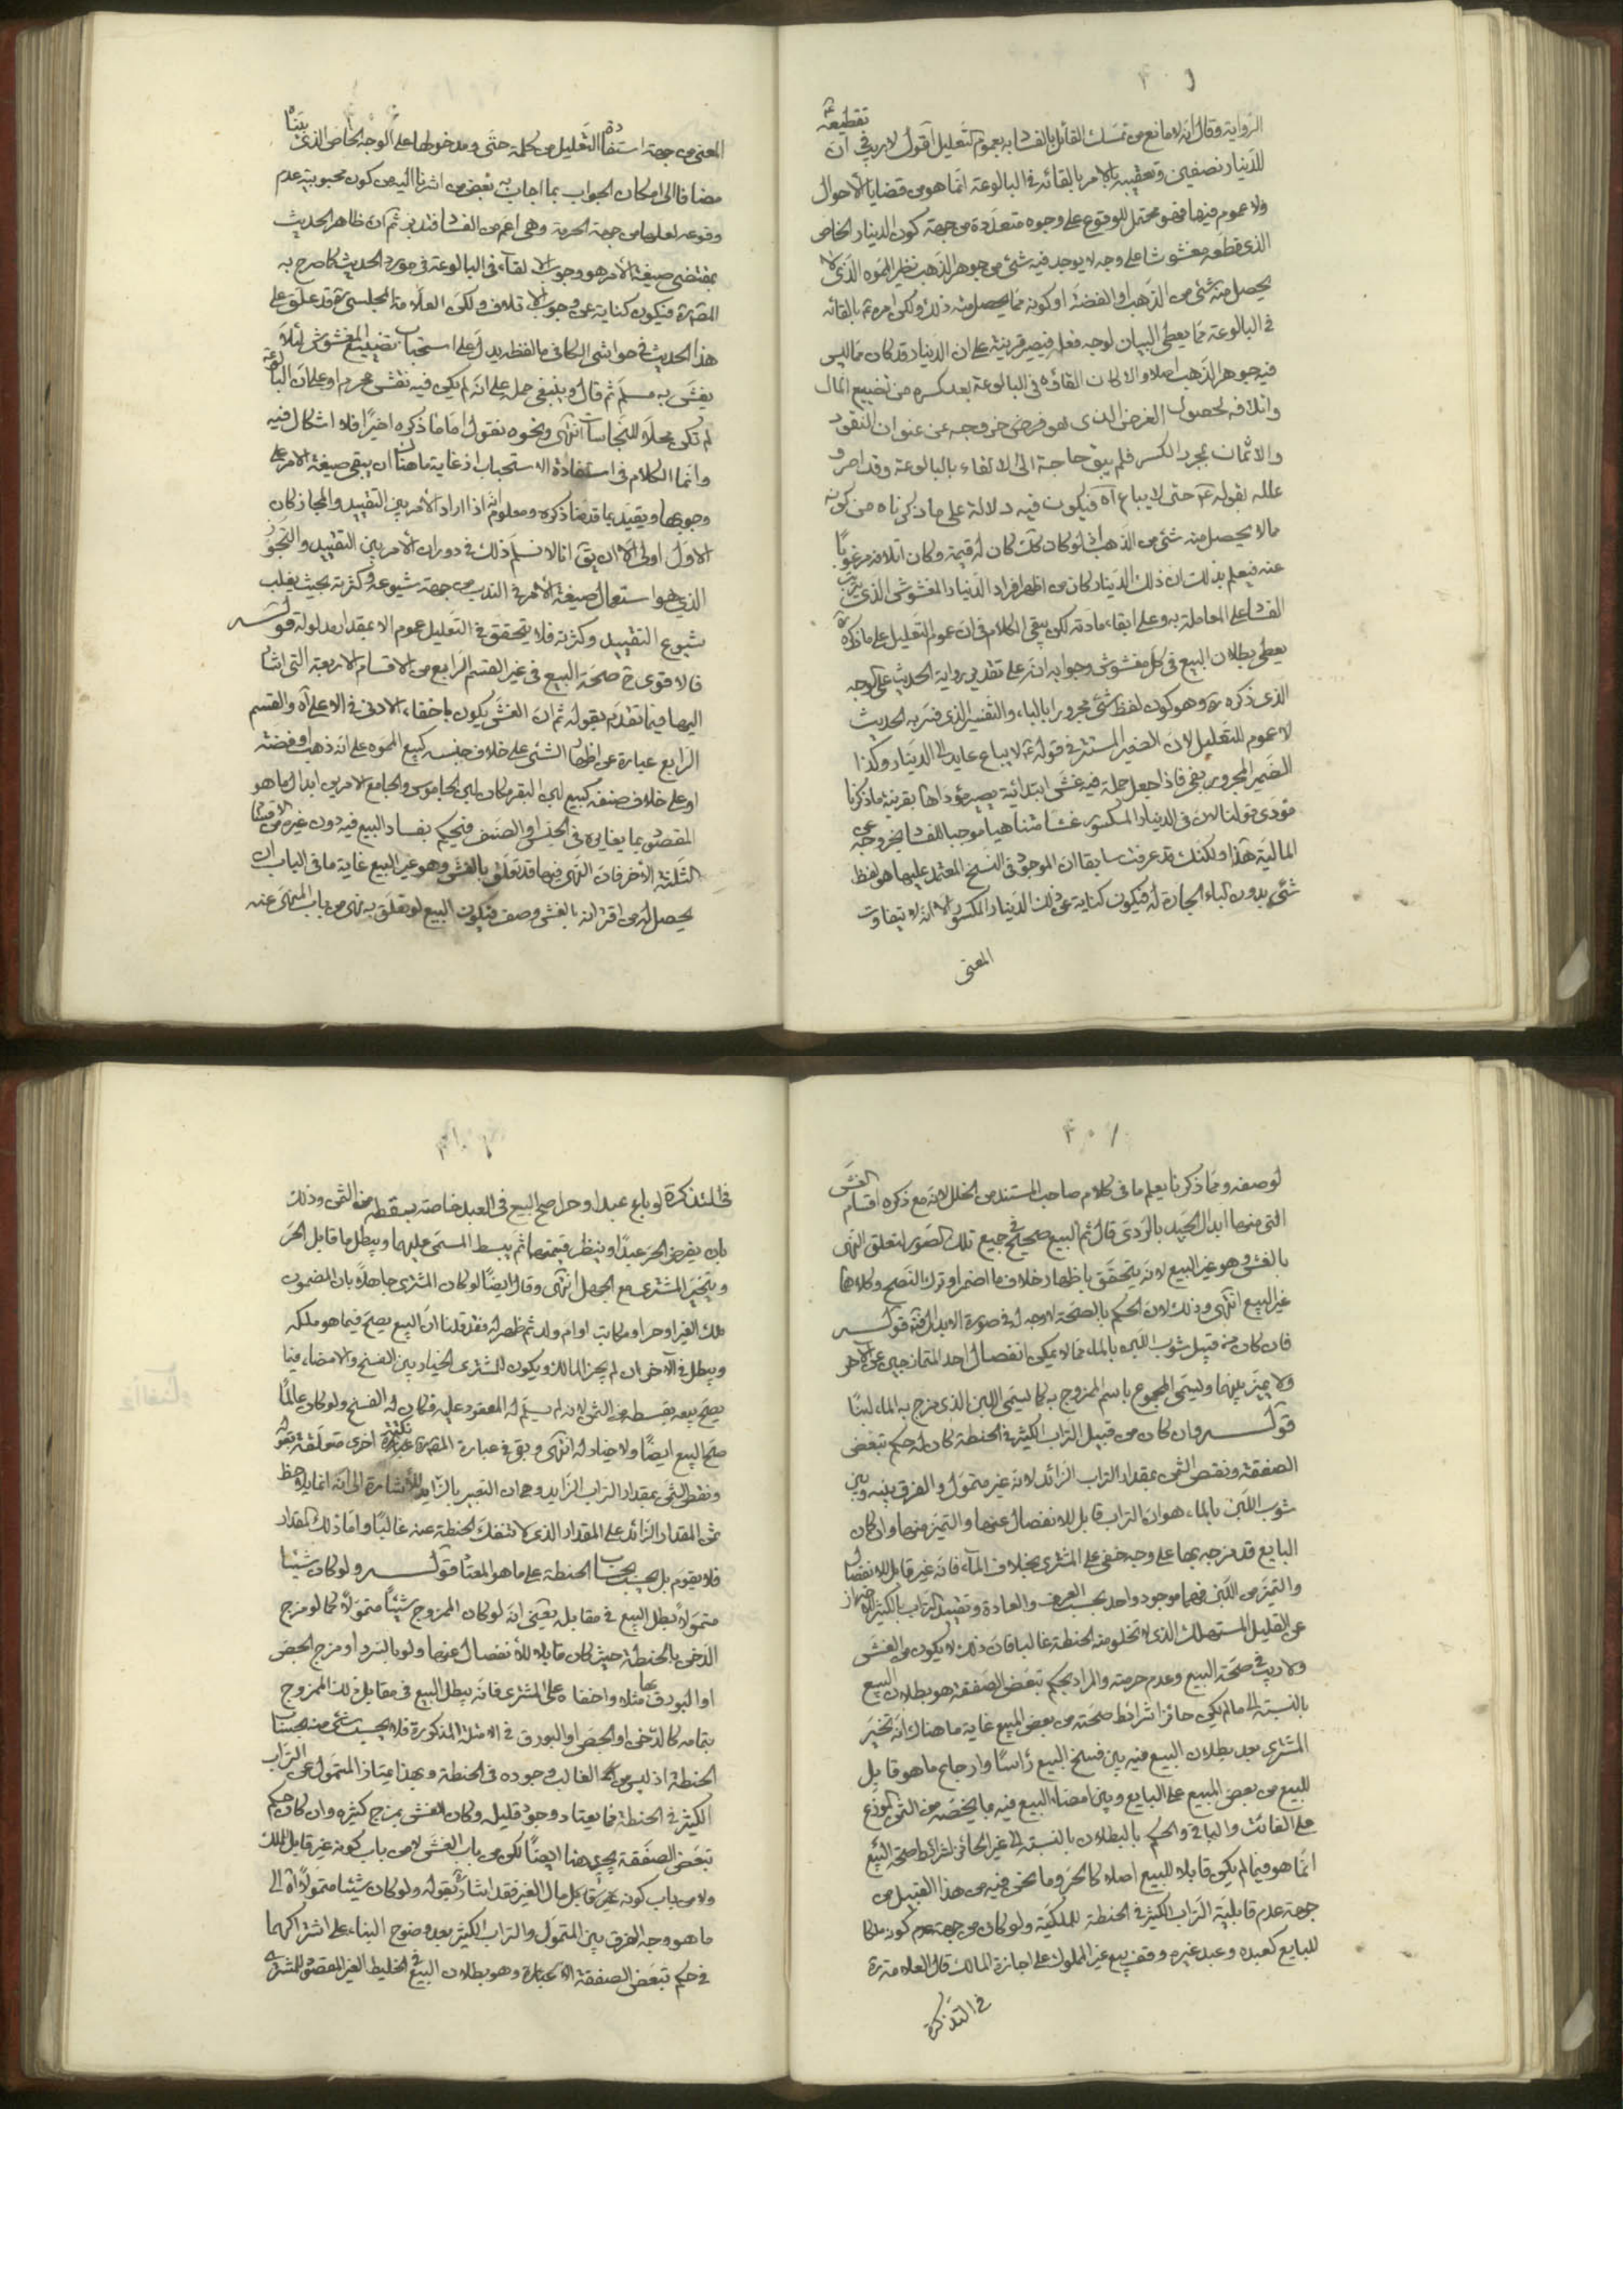 الرواية وقال انه لا مانع من تمسك القائل بالفساد به بعموم التعليل اقول لا ريب في ان تقطيعه
للدينار نصفين وتعقيبه بالامر بالقائه في البالوعة انما هو من قضايا الاحوال
ولا عموم فيها فهو محتمل للوقوع على وجوه متعددة من جهة كون الدينار الخاص
الذي قطعه مغشوشا على وجه لا يوجد فيه شئ من جوهر الذهب نظير المموه الذي لا
يحصل منه شئ من الذهب او الفضة او كونه مما يحصل منه ذلك ولكن امره بالقائه
في البالوعة مما يعطي البيان لوجه فعله فيصير قرينة على ان الدينار قد كان مما ليس
فيه جوهر الذهب اصلا والا لكان القاؤه في البالوعة بعد كسره من تضييع المال
واتلافه لحصول الغرض الذي هو فرض خروجه عن عنوان النقود
والاثمان بمجرد الكسر فلم يبق حاجة الى الالقاء بالبالوعة وقد امر و
علله بقوله ع حتى لا يباع اه فيكون فيه دلالة على ما ذكرناه من كونه
مما لا يحصل منه شئ من الذهب اذ لو كان كك كان له قيمة وكان اتلافه مرغوبا
عنه فيعلم بذلك ان ذلك الدينار كان من اظهر افراد الدينار المغشوش الذي يترتب
الفساد على المعاملة به وعلى ابقاء مادته لكن يبقى الكلام في ان عموم التعليل على ما ذكره
يعطي بطلان البيع في كل مغشوش وجوابه انه على تقدير رواية الحديث على الوجه
الذي ذكره ره وهو كون لفظ شئ مجرورا بالباء والتفسير الذي فسر به الحديث
لا عموم للتعليل لان الضمير المستتر في قوله ع لا يباع عايد الى الدينار وكذا
الضمير المجرور بفي فاذا جعل جملة فيه غش ابتدائية يصير مؤداها بقرينة ما ذكرنا
مؤدى قولنا لان في الدينار المكسور غشا متناهيا موجبا للفساد لخروجه عن
المالية هذا ولكنك قد عرفت سابقا ان الموجود في النسخ المعتمد عليها هو لفظ
شئ بدون الباء الجارة له فيكون كناية عن ذلك الدينار المكسور الا انه لا يتفاوت
المعنى
المعنى من جهة استفادة التعليل من كلمة حتى ومدخولها على الوجه الخاص الذي بيناه
مضافا الى امكان الجواب بما اجاب به بعض من اشرنا اليه من كون محبوبية عدم
وقوعه لعلها من جهة الحرمة وهي اعم من الفساد فتدبر ثم ان ظاهر الحديث
بمقتضى صيغة الامر هو وجوب الالقاء في البالوعة في مورد الحديث كما صرح به
المصره فيكون كناية عن وجوب الاتلاف ولكن العلامة المجلسي ره قد علق على
هذا الحديث في حواشي الكافي ما لفظه يدل على استحباب تضييع المغشوش لئلا
يغش به مسلم ثم قال وينبغي حمله على انه لم يكن فيه نقش محترم او على ان البالوعة
لم تكن محلا للنجاسات انتهى ونحوه نقول اما ما ذكره اخيرا فلا اشكال فيه
وانما الكلام في استفادة الاستحباب اذ غاية ما هناك ان يبقى صيغة الامر على
وجوبها ويقيد بما قد ذكره ومعلوم انه اذا دار الامر بين التقييد والمجاز كان
الاول اولى الا ان يق انا لا نسلم ذلك في دوران الامر بين التقييد والتجوز
الذي هو استعمال صيغة الامر في الندب من جهة شيوعه وكثرته بحيث يغلب
شيوع التقييد وكثرته فلا يتحقق في التعليل عموم الا بمقدار مدلوله قوله
فالاقوى ح صحة البيع في غير القسم الرابع من الاقسام الاربعة التي اشار
اليها فيما تقدم بقوله ثم ان الغش يكون باخفاء الادنى في الاعلى اه والقسم
الرابع عبارة عن اظهار الشئ على خلاف جنسه كبيع المموه على انه ذهب او فضة
او على خلاف صنفه كبيع لبن البقر مكان لبن الجاموس والجامع الامرين ابدال ما هو
المقصود بما يغايره في الجنس او الصنف فيحكم بفساد البيع فيه دون غيره من الاقسام
الثلثة الاخر فان النهي فيها قد تعلق بالغش وهو غير البيع غاية ما في الباب ان
يحصل له من اقترانه بالغش وصف فيكون البيع لو تعلق به نهي من باب المنهي عنه
لوصفه ومما ذكرنا يعلم ما في كلام صاحب المستند من الخلل لانه مع ذكره اقسام الغش
التي منها ابدال الجيد بالردي قال ثم البيع صحيح في جميع تلك الصور لتعلق النهي
بالغش وهو غير البيع لانه يتحقق باظهار خلاف ما اضمر او ترك النصح وكلاهما
غير البيع انتهى وذلك لان الحكم بالصحة لا وجه له في صورة الابدال فتدبر قوله
فان كان من قبيل شوب اللبن بالماء مما لا يمكن انفصال احد المتمازجين عن الاخر
ولا يميز بينهما ويسمى المجموع باسم الممزوج به كما يسمى اللبن الذي مزج به الماء لبنا
قوله وان كان من قبيل التراب الكثير في الحنطة كان له حكم تبعض
الصفقة ونقص الثمن بمقدار التراب الزائد لانه غير متمول والفرق بينه وبين
شوب اللبن بالماء هو ان التراب قابل للانفصال عنها والتميز منها وان كان
البايع قد مزجه بها على وجه خفي على المشتري بخلاف الماء فانه غير قابل للانفصال
والتميز من اللبن فهما موجود واحد بحسب العرف والعادة وتقييد التراب بالكثير للاحتراز
عن القليل المستهلك الذي لا تخلو منه الحنطة غالبا فان ذلك لا يكون من الغش
ولا ريب في صحة البيع وعدم حرمته والمراد بحكم تبعض الصفقة هو بطلان البيع
بالنسبة الى ما لم يكن حائزا شرائط صحته من بعض المبيع غاية ما هناك انه تخير
المشتري بعد بطلان البيع فيه بين فسخ البيع رأسا وارجاع ما هو قابل
للبيع من بعض المبيع على البايع وبين امضاء البيع فيه ما يخصه من الثمن الموزع
على الفائت والباقي والحكم بالبطلان بالنسبة الى غير الحائز لشرائط صحة البيع
انما هو فيما لم يكن قابلا للبيع اصلا كالحر وما نحن فيه من هذا القبيل من
جهة عدم قابلية التراب الكثير في الحنطة للملكية ولو كان من جهة عدم كونه ملكا
للبايع كعبده وعبد غيره وقف بيع غير المملوك على اجازة المالك قال العلامة ره
في التذكرة
في التذكرة لو باع عبدا وحرا صح البيع في العبد خاصة بقسطه من الثمن وذلك
بان يفرض الحر عبدا وينظر قيمتهما ثم يبسط المسمى عليهما ويبطل ما قابل الحر
ويتخير المشتري مع الجهل انتهى وقال ايضا لو كان المشتري جاهلا بان المضموم
ملك الغير او حر او مكاتب او ام ولد ثم ظهر له فقد قلنا ان البيع يصح فيما هو ملكه
ويبطل في الاخر ان لم يجز المالك ويكون للمشتري الخيار بين الفسخ والامضاء فيما
يصح بيعه بقسطه من الثمن لانه لم يسلم له المعقود عليه فكان له الفسخ ولو كان عالما
صح البيع ايضا ولا خيار له انتهى وبقي في عبارة المصره نكتة اخرى متعلقة بقوله
ونقص الثمن بمقدار التراب الزايد وهي ان التعبير بالزايد للاشارة الى انه انما يلاحظ
ثمن المقدار الزائد على المقدار الذي لا تنفك الحنطة عنه غالبا واما ذلك المقدار
فلا يقوم بل يحسب بحساب الحنطة على ما هو المعتاد قوله ولو كان شيئا
متمولا بطل البيع في مقابله يعني انه لو كان الممزوج شيئا متمولا كما لو مزج
الدخن بالحنطة حيث كان قابلا للانفصال عنها ولو بالسرد او مزج الجص
او البورق بها مثلا واخفاه على المشتري فانه يبطل البيع في مقابل ذلك الممزوج
بتمامه كالدخن او الجص او البورق في الامثلة المذكورة فلا يحسب شئ منه بحساب
الحنطة اذ ليس من الغالب وجوده في الحنطة وبهذا يمتاز المتمول عن التراب
الكثير في الحنطة فما يعتاد وجود قليله وكان الغش بمزج كثيره وان كان حكم
تبعض الصفقة يجري هنا ايضا لكن من باب الغش لا من باب كونه غير قابل للملك
ولا من باب كونه قابل مال الغير فقد اشار بقوله ولو كان شيئا متمولا اه الى
ما هو وجه الفرق بين المتمول والتراب الكثير بعد وضوح البناء على اشتراكهما
في حكم تبعض الصفقة وهو بطلان البيع في الخليط الغير المقصود للمشتري